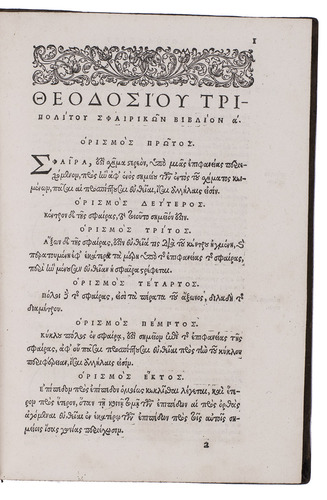 1
ΘΕΟΔΟΣΙΟΥ ΤΡΙ-
ΠΟΛΙΤΟΥ ΣΦΑΙΡΙΚΩΝ ΒΙΒΛΙΟΝ α΄.
ΟΡΙΣΜΟΣ ΠΡΩΤΟΣ.
Σφαῖρα, ἐστὶ σχῆμα στερεὸν, ὑπὸ μιᾶς ἐπιφανείας περιε-
χόμενον, πρὸς ἣν ἀφ' ἑνὸς σημείου τῶν ἐντὸς τοῦ σχήματος κει-
μένων, πᾶσαι αἱ προσπίπτουσαι εὐθεῖαι, ἴσαι ἀλλήλαις εἰσίν.
ΟΡΙΣΜΟΣ ΔΕΥΤΕΡΟΣ.
Κέντρον δὲ τῆς σφαίρας, τὸ τοιοῦτο σημεῖόν ἐστιν.
ΟΡΙΣΜΟΣ ΤΡΙΤΟΣ.
Ἄξων δὲ τῆς σφαίρας, ἐστὶν εὐθεῖά τις διὰ τοῦ κέντρου ἠγμένη, καὶ
περατουμένη ἐφ' ἑκάτερα τὰ μέρη ὑπὸ τῆς ἐπιφανείας τῆς σφαίρας,
περὶ ἣν μένουσαν εὐθεῖαν ἡ σφαῖρα στρέφεται.
ΟΡΙΣΜΟΣ ΤΕΤΑΡΤΟΣ.
Πόλοι δὲ τῆς σφαίρας, εἰσὶ τὰ πέρατα τοῦ ἄξωνος, δηλαδὴ τῆς
διαμέτρου.
ΟΡΙΣΜΟΣ ΠΕΜΠΤΟΣ.
Κύκλου πόλος ἐν σφαίρᾳ, ἐστὶ σημεῖον ἐπὶ τῆς ἐπιφανείας τῆς
σφαίρας, ἀφ' οὗ πᾶσαι αἱ προσπίπτουσαι εὐθεῖαι πρὸς τὴν τοῦ κύκλου
περιφέρειαν, ἴσαι ἀλλήλαις εἰσίν.
ΟΡΙΣΜΟΣ ΕΚΤΟΣ.
Ἐπίπεδον πρὸς ἐπίπεδον ὁμοίως κεκλίσθαι λέγεται, καὶ ἕτε-
ρον πρὸς ἕτερον, ὅταν τῇ κοινῇ τομῇ τῶν ἐπιπέδων αἱ πρὸς ὀρθὰς
ἀγόμεναι εὐθεῖαι ἐν ἑκατέρῳ τῶν ἐπιπέδων πρὸς τοῖς αὐτοῖς ση-
μείοις ἴσας γωνίας περιέχωσιν.
2